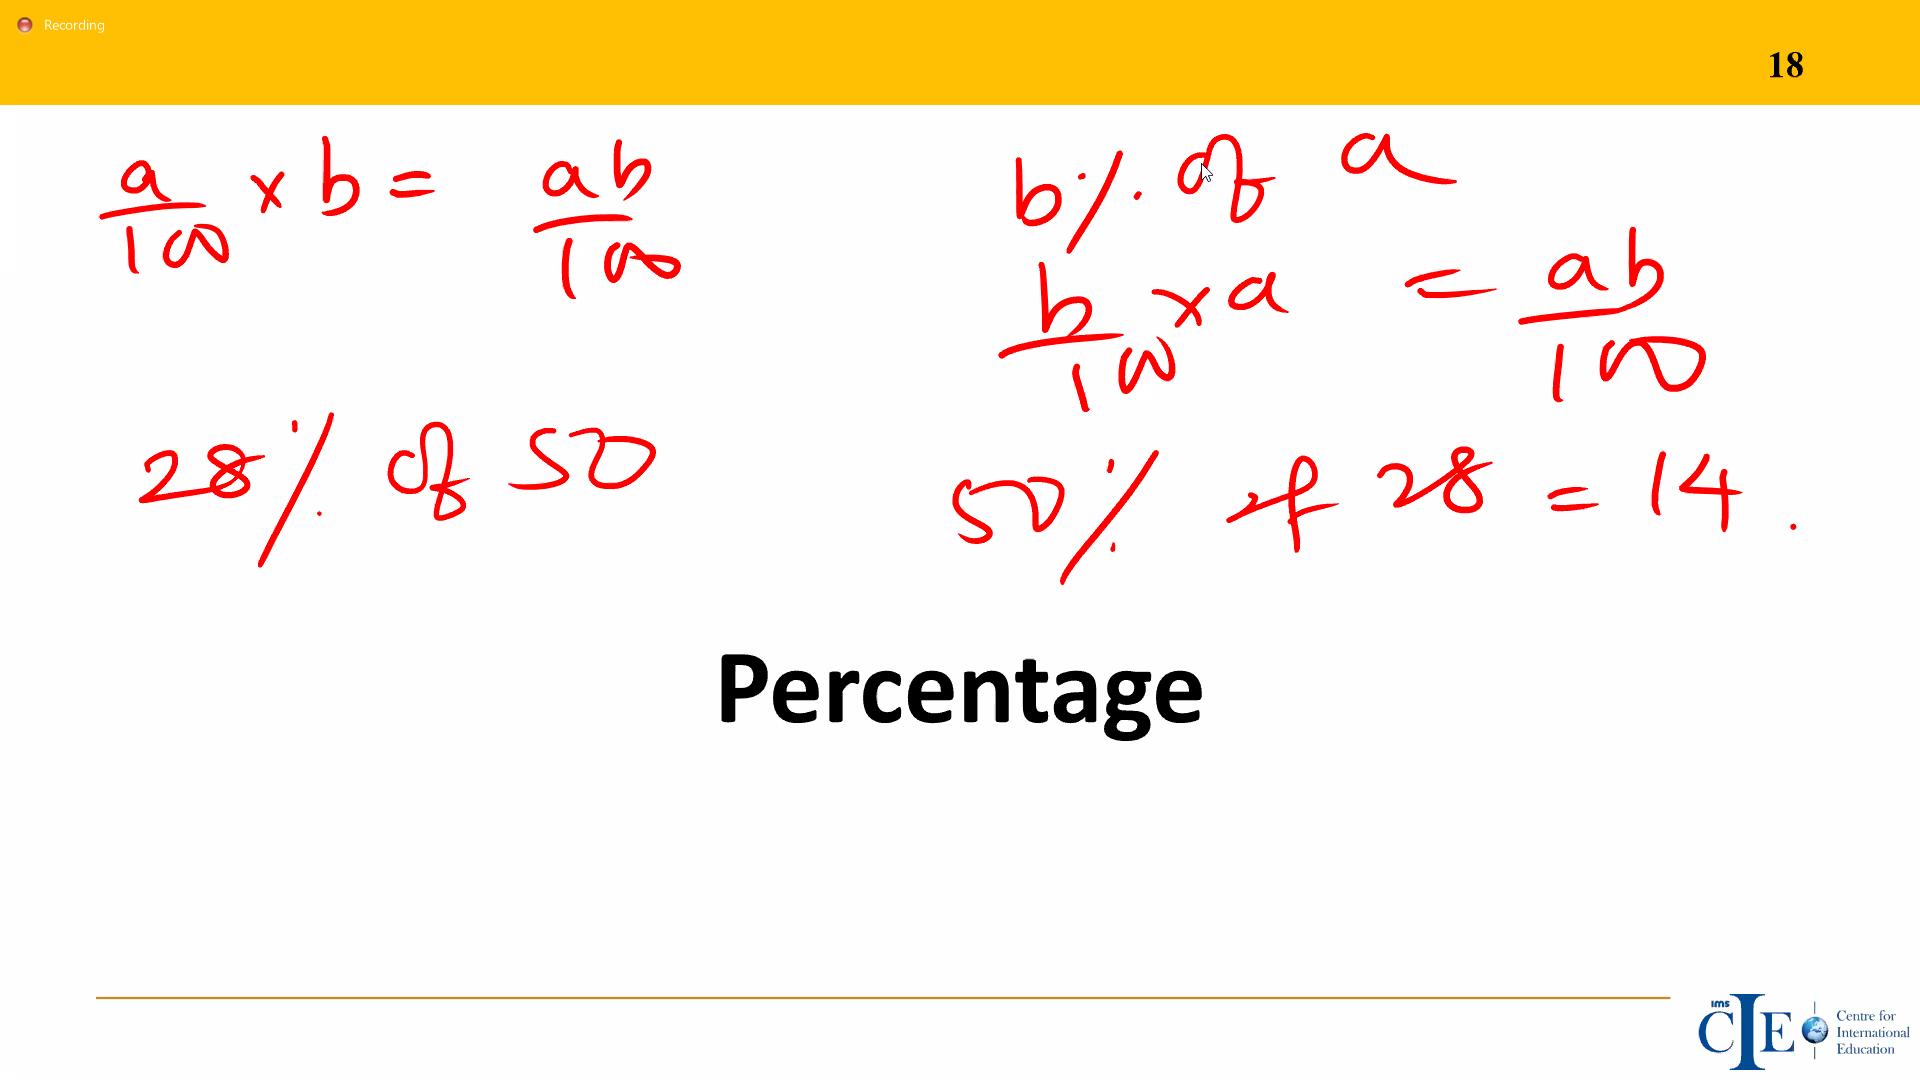 Recording
18
a/100 × b = ab/100
b% of a
b/100 × a = ab/100
28% of 50
50% of 28 = 14.
Percentage
ims
CIE
Centre for
International
Education